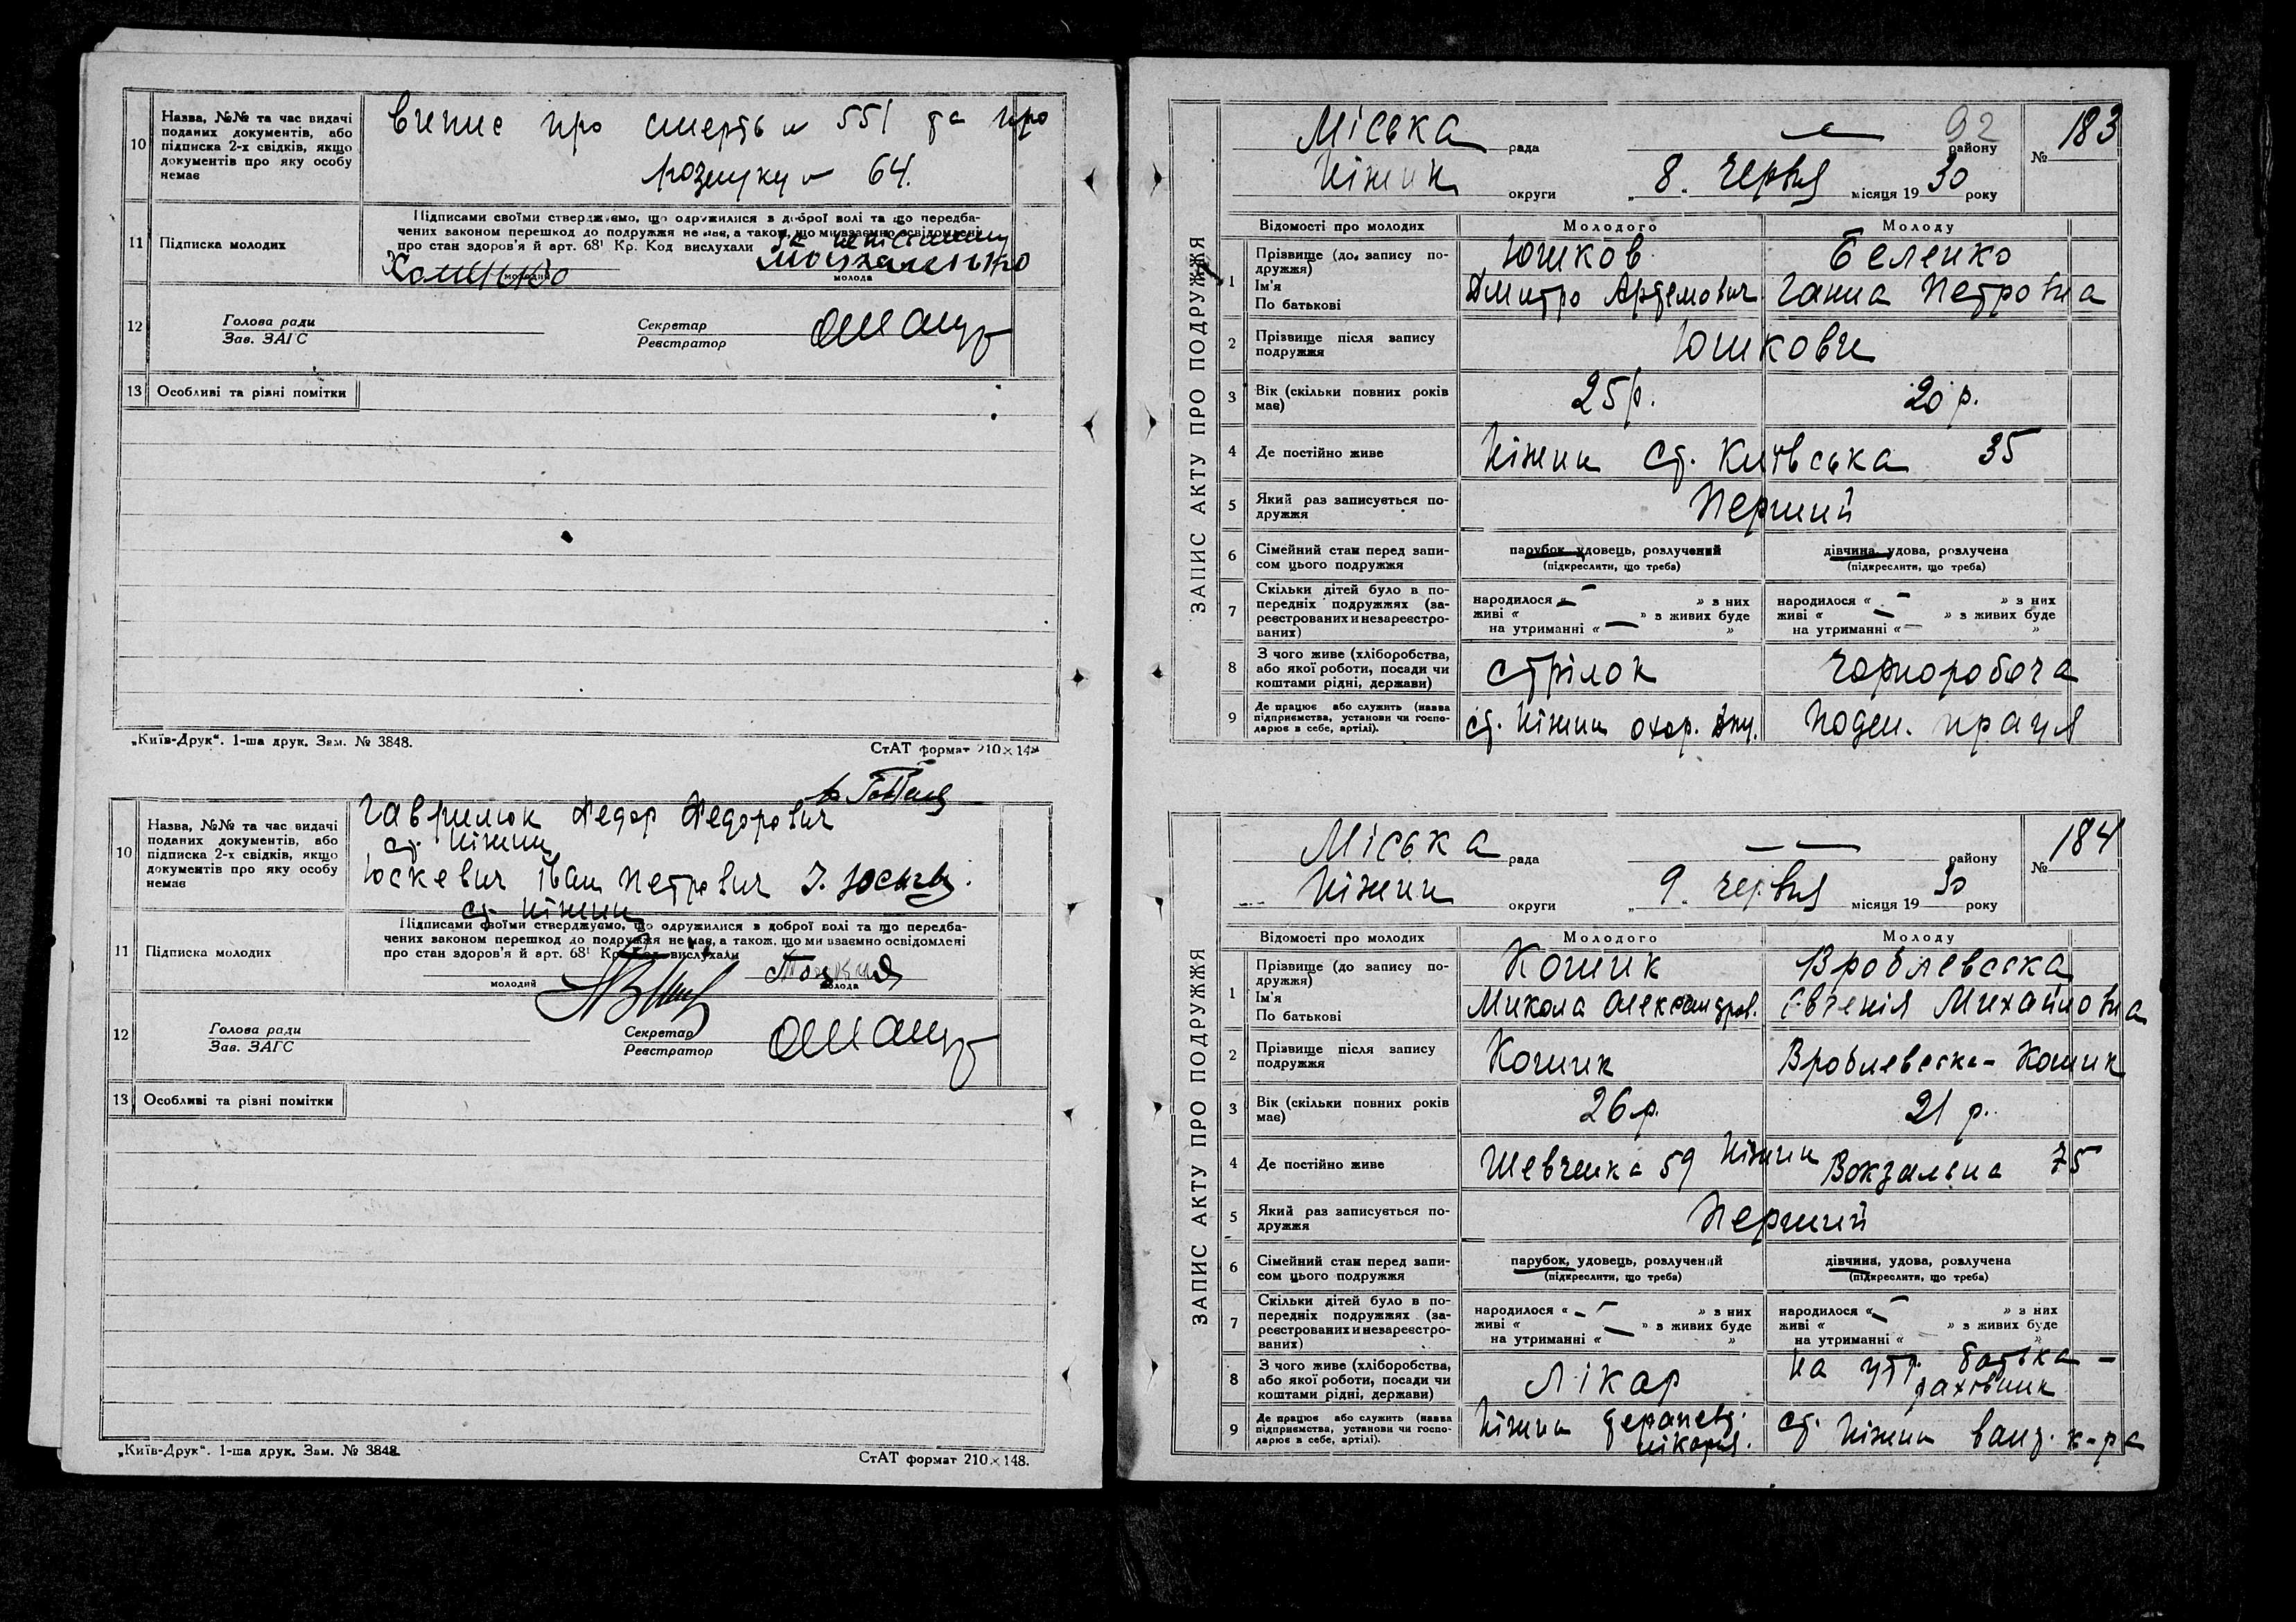 10
Назва, №№ та час видачі
поданих документів, або
підписка 2-х свідків, якщо
документів про яку особу
немає
випис про смерть н 551 та про
розлуку н 64.
11
Підписка молодих
Підписами своїми стверджуємо, що одружилися з доброї волі та що передба-
чених законом перешкод до подружжя не має, а також, що ми взаємно освідомлені
про стан здоров'я й арт. 68¹ Кр. Код вислухали
за неписьменну
молодий
молода
12
Голова ради
Зав. ЗАГС
Секретар
Реєстратор
13 Особливі та різні помітки
„Київ-Друк". 1-ша друк. Зам. № 3848.
СтАТ формат 210×148
10
Назва, №№ та час видачі
поданих документів, або
підписка 2-х свідків, якщо
документів про яку особу
немає
Гаврилюк Федор Федорович
ст. Ніжин
Юскевич Іван Петрович
ст. Ніжин
11
Підписка молодих
Підписами своїми стверджуємо, що одружилися з доброї волі та що передба-
чених законом перешкод до подружжя не має, а також, що ми взаємно освідомлені
про стан здоров'я й арт. 68¹ Кр. Код вислухали
молодий
молода
12
Голова ради
Зав. ЗАГС
Секретар
Реєстратор
13 Особливі та різні помітки
„Київ-Друк". 1-ша друк. Зам. № 3848
СтАТ формат 210×148.
ЗАПИС АКТУ ПРО ПОДРУЖЖЯ
Міська рада — району 92
№ 183
Ніжин округи „8. червня місяця 1930 року
Відомості про молодих Молодого Молоду
1
Прізвище (до запису по-
дружжя)
Ім'я
По батькові
Юшков Беленко
Дмитро Артемович Ганна Петровна
2
Прізвище після запису
подружжя
Юшкови
3
Вік (скільки повних років
має)
25 р. 20 р.
4 Де постійно живе
Ніжин ст. Київська 35
5
Який раз записується по-
дружжя
Перший
6
Сімейний стан перед запи-
сом цього подружжя
парубок, удовець, розлучений
(підкреслити, що треба)
дівчина, удова, розлучена
(підкреслити, що треба)
7
Скільки дітей було в по-
передніх подружжях (за-
реєстрованих и незареєстро-
ваних)
народилося « — » з них
живі « — » з живих буде
на утриманні « »
народилося « — » з них
живі « — » з живих буде
на утриманні « — »
8
З чого живе (хліборобства,
або якої роботи, посади чи
коштами рідні, держави)
стрілок чорноробоча
9
Де працює або служить (назва
підприємства, установи чи госпо-
дарює в себе, артілі).
ст. Ніжин охор. поден. праця
ЗАПИС АКТУ ПРО ПОДРУЖЖЯ
Міська рада — — району
№ 184
Ніжин округи „9. червня місяця 1930 року
Відомості про молодих Молодого Молоду
1
Прізвище (до запису по-
дружжя)
Ім'я
По батькові
Кошик Вроблевська
Микола Олександров. Євгенія Михайловна
2
Прізвище після запису
подружжя
Кошик Вроблевська-Кошик
3
Вік (скільки повних років
має)
26 р. 21 р.
4 Де постійно живе
Шевченка 59 Ніжин Вокзальна 75
5
Який раз записується по-
дружжя
Перший
6
Сімейний стан перед запи-
сом цього подружжя
парубок, удовець, розлучений
(підкреслити, що треба)
дівчина, удова, розлучена
(підкреслити, що треба)
7
Скільки дітей було в по-
передніх подружжях (за-
реєстрованих и незареєстро-
ваних)
народилося « — » з них
живі « — » з живих буде
на утриманні « »
народилося « — » з них
живі « » з живих буде
на утриманні « »
8
З чого живе (хліборобства,
або якої роботи, посади чи
коштами рідні, держави)
Лікар
на утр. батька -
рахівник
9
Де працює або служить (назва
підприємства, установи чи госпо-
дарює в себе, артілі).
Ніжин терапевт.
лікарня.
ст. Ніжин ванд. к-ра